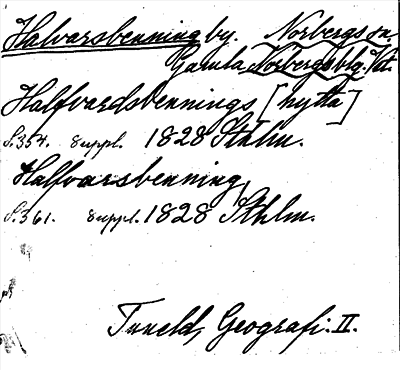 Halvarsbenning by. Norbergs sn.
Gamla Norbergs blg. Vstm.
Halfvardsbennings [hytta]
S. 354. suppl. 1828 Sthlm.
Halfvarsbenning,
S. 361. suppl. 1828 Sthlm.
Tuneld, Geografi. II.